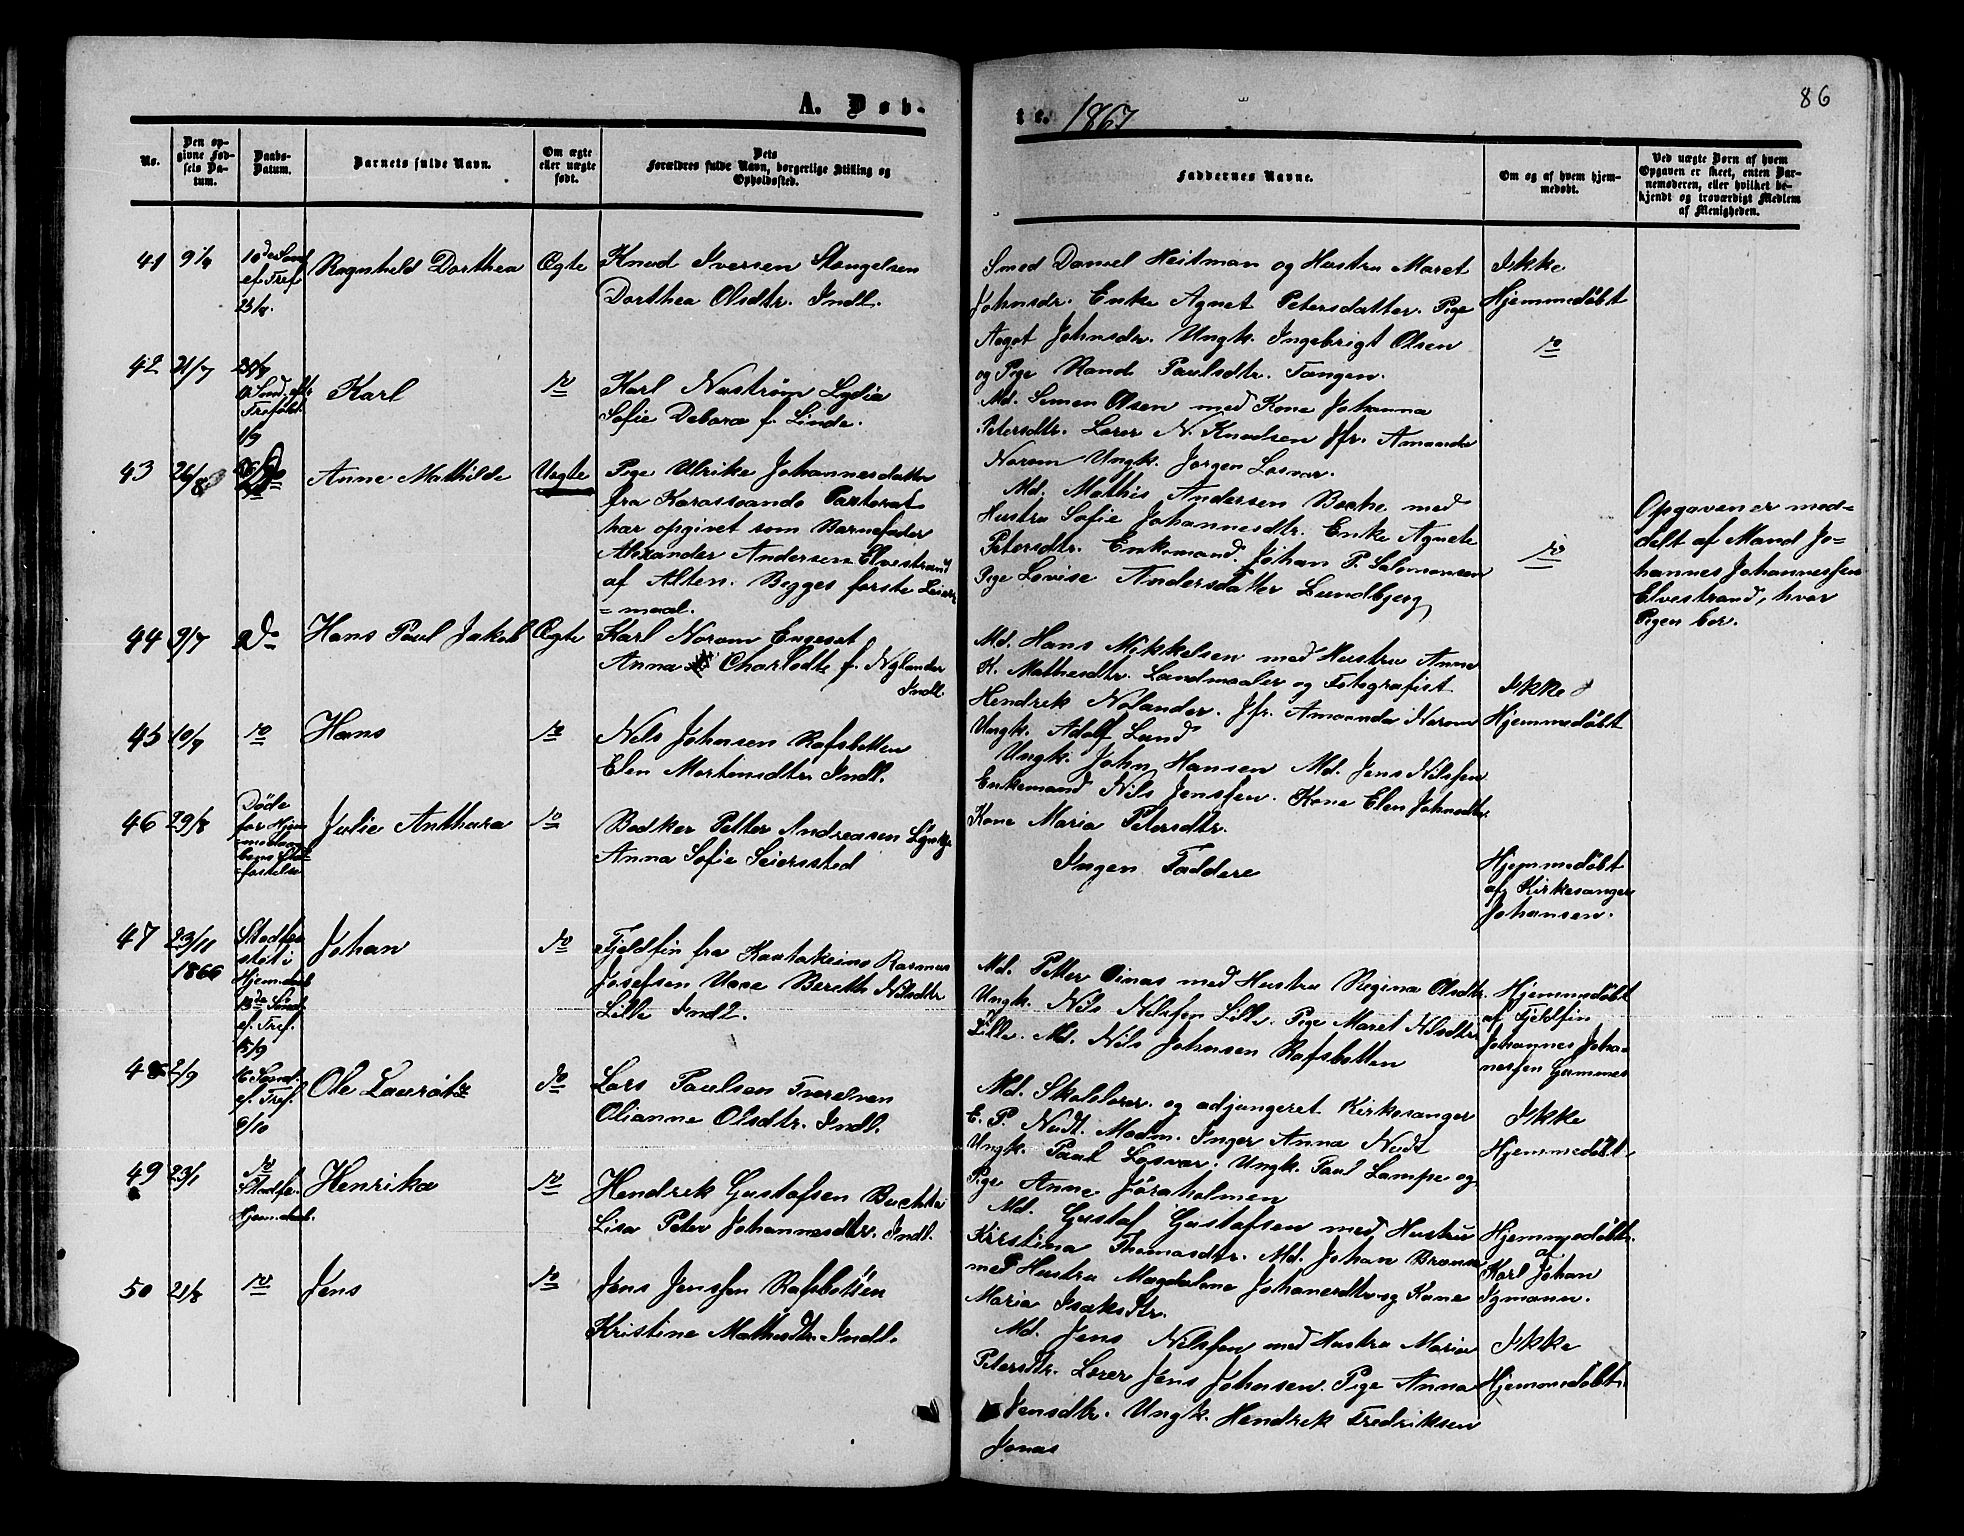 86
A. Døb-
te. 1867
No.
Den op-
givne Fød-
sels Da-
tum.
Daabs-
Datum.
Barnets fulde Navn.
Om ægte
eller uægte
født.
Dets
Forældres fulde Navn, borgerlige Stilling og
Opholdssted.
Faddernes Navne.
Om og af hvem hjem-
medøbt.
Ved uægte Børn af hvem
Opgaven er skeet, enten Bar-
nemoderen, eller hvilket be-
kjendt og troværdigt Medlem
af Menigheden.
41
10de Sønd
ef. Tref.
25/8.
Ragnhild Dorthea
Ægte
Knud Iversen Stongelsen
Dorthea Olsdtr. Indl.
Smed Daniel Heitman og Hustru Maret
Johnsdr. Enke Agnet Petersdatter. Pige
Aagot Johnsdr. Ungk. Ingebrigt Olsen
og Pige Rand Paulsdtr. Tangen.
Ikke
Hjemmedøbt
42 21/7
1/9
Karl
do
Karl Nastrøm Lydia
Sofie Debora f. Linde.
Md. Simon Olsen med Kone Johanna
Petersdtr. Lærer N. Knudsen Jfr. Amanda
Norom Ungk. Jørgen Losvar.
do
43 26/8
Anne Mathilde
Uægte
Pige Ulrike Johannesdatter
fra Karassuando Pastorat
har opgivet som Barnefader
Alexander Andersen Elvestrand
af Alten. Begges første Leier-
=maal.
Md. Mathis Andersen Bæhe med
Hustru Sofie Johannesdtr. Enke Agnete
Petersdtr. Enkemand Johan P. Salomonsen
Pige Lovise Andersdatter Lundbjerg
do
Opgaven er med=
delt af Mand Jo-
hannes Johannessen
Elvestrand, hvor
Pigen bor.
44 9/7
Do
Hans Paul Jakob
Ægte
Karl Norom Engeset
Anna Charlotte f. Nylander
Indl.
Md. Hans Mikkelsen med Hustru Anne
K. Mathesdtr. Landmaaler og Fotografist
Hendrik Nolander. Jfr. Amanda Norom
Ungk. Adolf Lund
Ikke
Hjemmedøbt
45 10/7
do
Hans
do
Nils Johnsen Rafsbotten
Elen Mortensdtr. Indl.
Ungk. John Hansen Md. Jens Nilssen
Enkemand Nils Jenssen. Kone Elen Johnsdtr.
Kone Maria Petersdtr.
46 29/8
Døde
før Hjem
Julie Anthora
do
Bødker Petter Andreasen
Anna Sofie Seiersted
Ingen Faddere
Hjemmedøbt
af Kirkesanger
Johansen.
47 23/11
1866
Stadfæ
stet i
Hjem.daab
13de Sønd
ef. Tref.
15/9
Johan
do
Fjeldfin fra Kautokeino Rasmus
Josefsen Uase Bereth Nilsdtr
Lille Indl.
Md. Petter Oinas med Hustru Regina Olsdtr.
Ungk. Nils Nilssen Lille. Pige Maret Nilsdtr
Lille. Md. Nils Johnsen Rafsbotten
Hjemmedøbt
af Fjeldfin
Johannes Joha-
nessen Gammes
48 2/9
16 Sønd.
ef. Tref.
6/10
Ole Lauritz
do
Lars Paulsen Tverelven
Olianne Olsdtr. Indl.
Md. Skolelærer og adjungeret Kirkesanger
E. P. Nudt. Madm. Inger Anna Nudt
Ungk. Paul Losvar. Ungk. Paul Lampe og
Pige Anne Jøraholmen
Ikke
Hjemmedøbt.
49 23/1
do
Stadfæ.
Hjem.daab.
Henrika
do
Hendrik Gustafsen Buchta
Lisa Peter Johannesdtr. Indl.
Md. Gustaf Gustafsen med Hustru
Kirstina Thomasdtr. Md. Johan Brænsa
med Hustru Magdalena Johanesdtr og Kone
Maria Isaksdtr.
Hjemmedøbt.
af
Karl Johan
Igmann.
50 21/8
do
Jens
do
Jens Jenssen Rafsbotten
Kristine Mathisdtr. Indl.
Md. Jens Nilssen med Hustru Maria
Petersdtr. Lærer Jens Johnsen. Pige Anna
Jensdtr. Ungk. Hendrik Fredriksen
Jonas
Ikke
Hjemmedøbt.